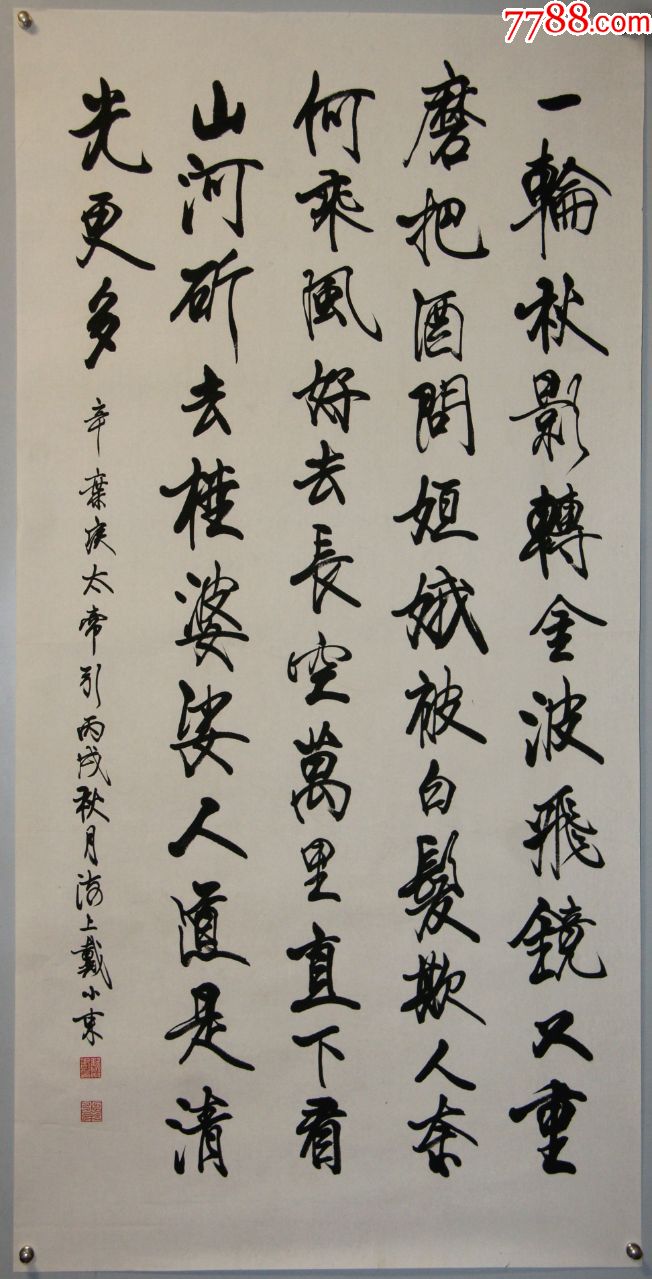 7788.com
一輪秋影轉金波飛鏡又重
磨把酒問姮娥被白髮欺人奈
何乘風好去長空萬里直下看
山河斫去桂婆娑人道是清
光更多
辛棄疾太常引丙戌秋月海上戴小京